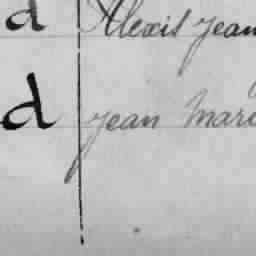 d Alexis Jean
d Jean Mari